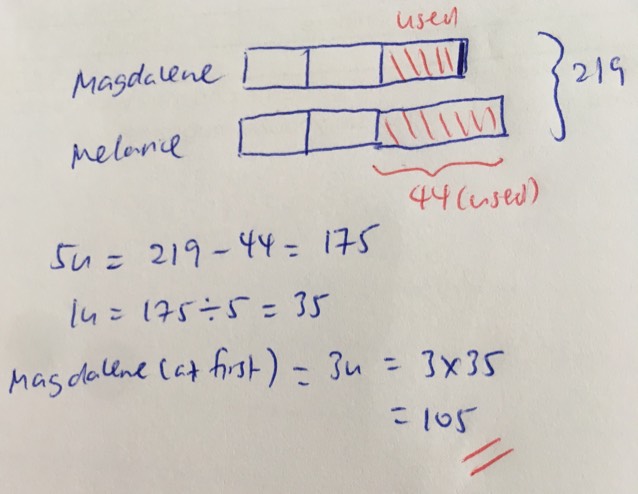 used
Magdalene
219
Melanie
44 (used)
5u = 219 - 44 = 175
1u = 175 ÷ 5 = 35
Magdalene (at first) = 3u = 3 x 35
= 105